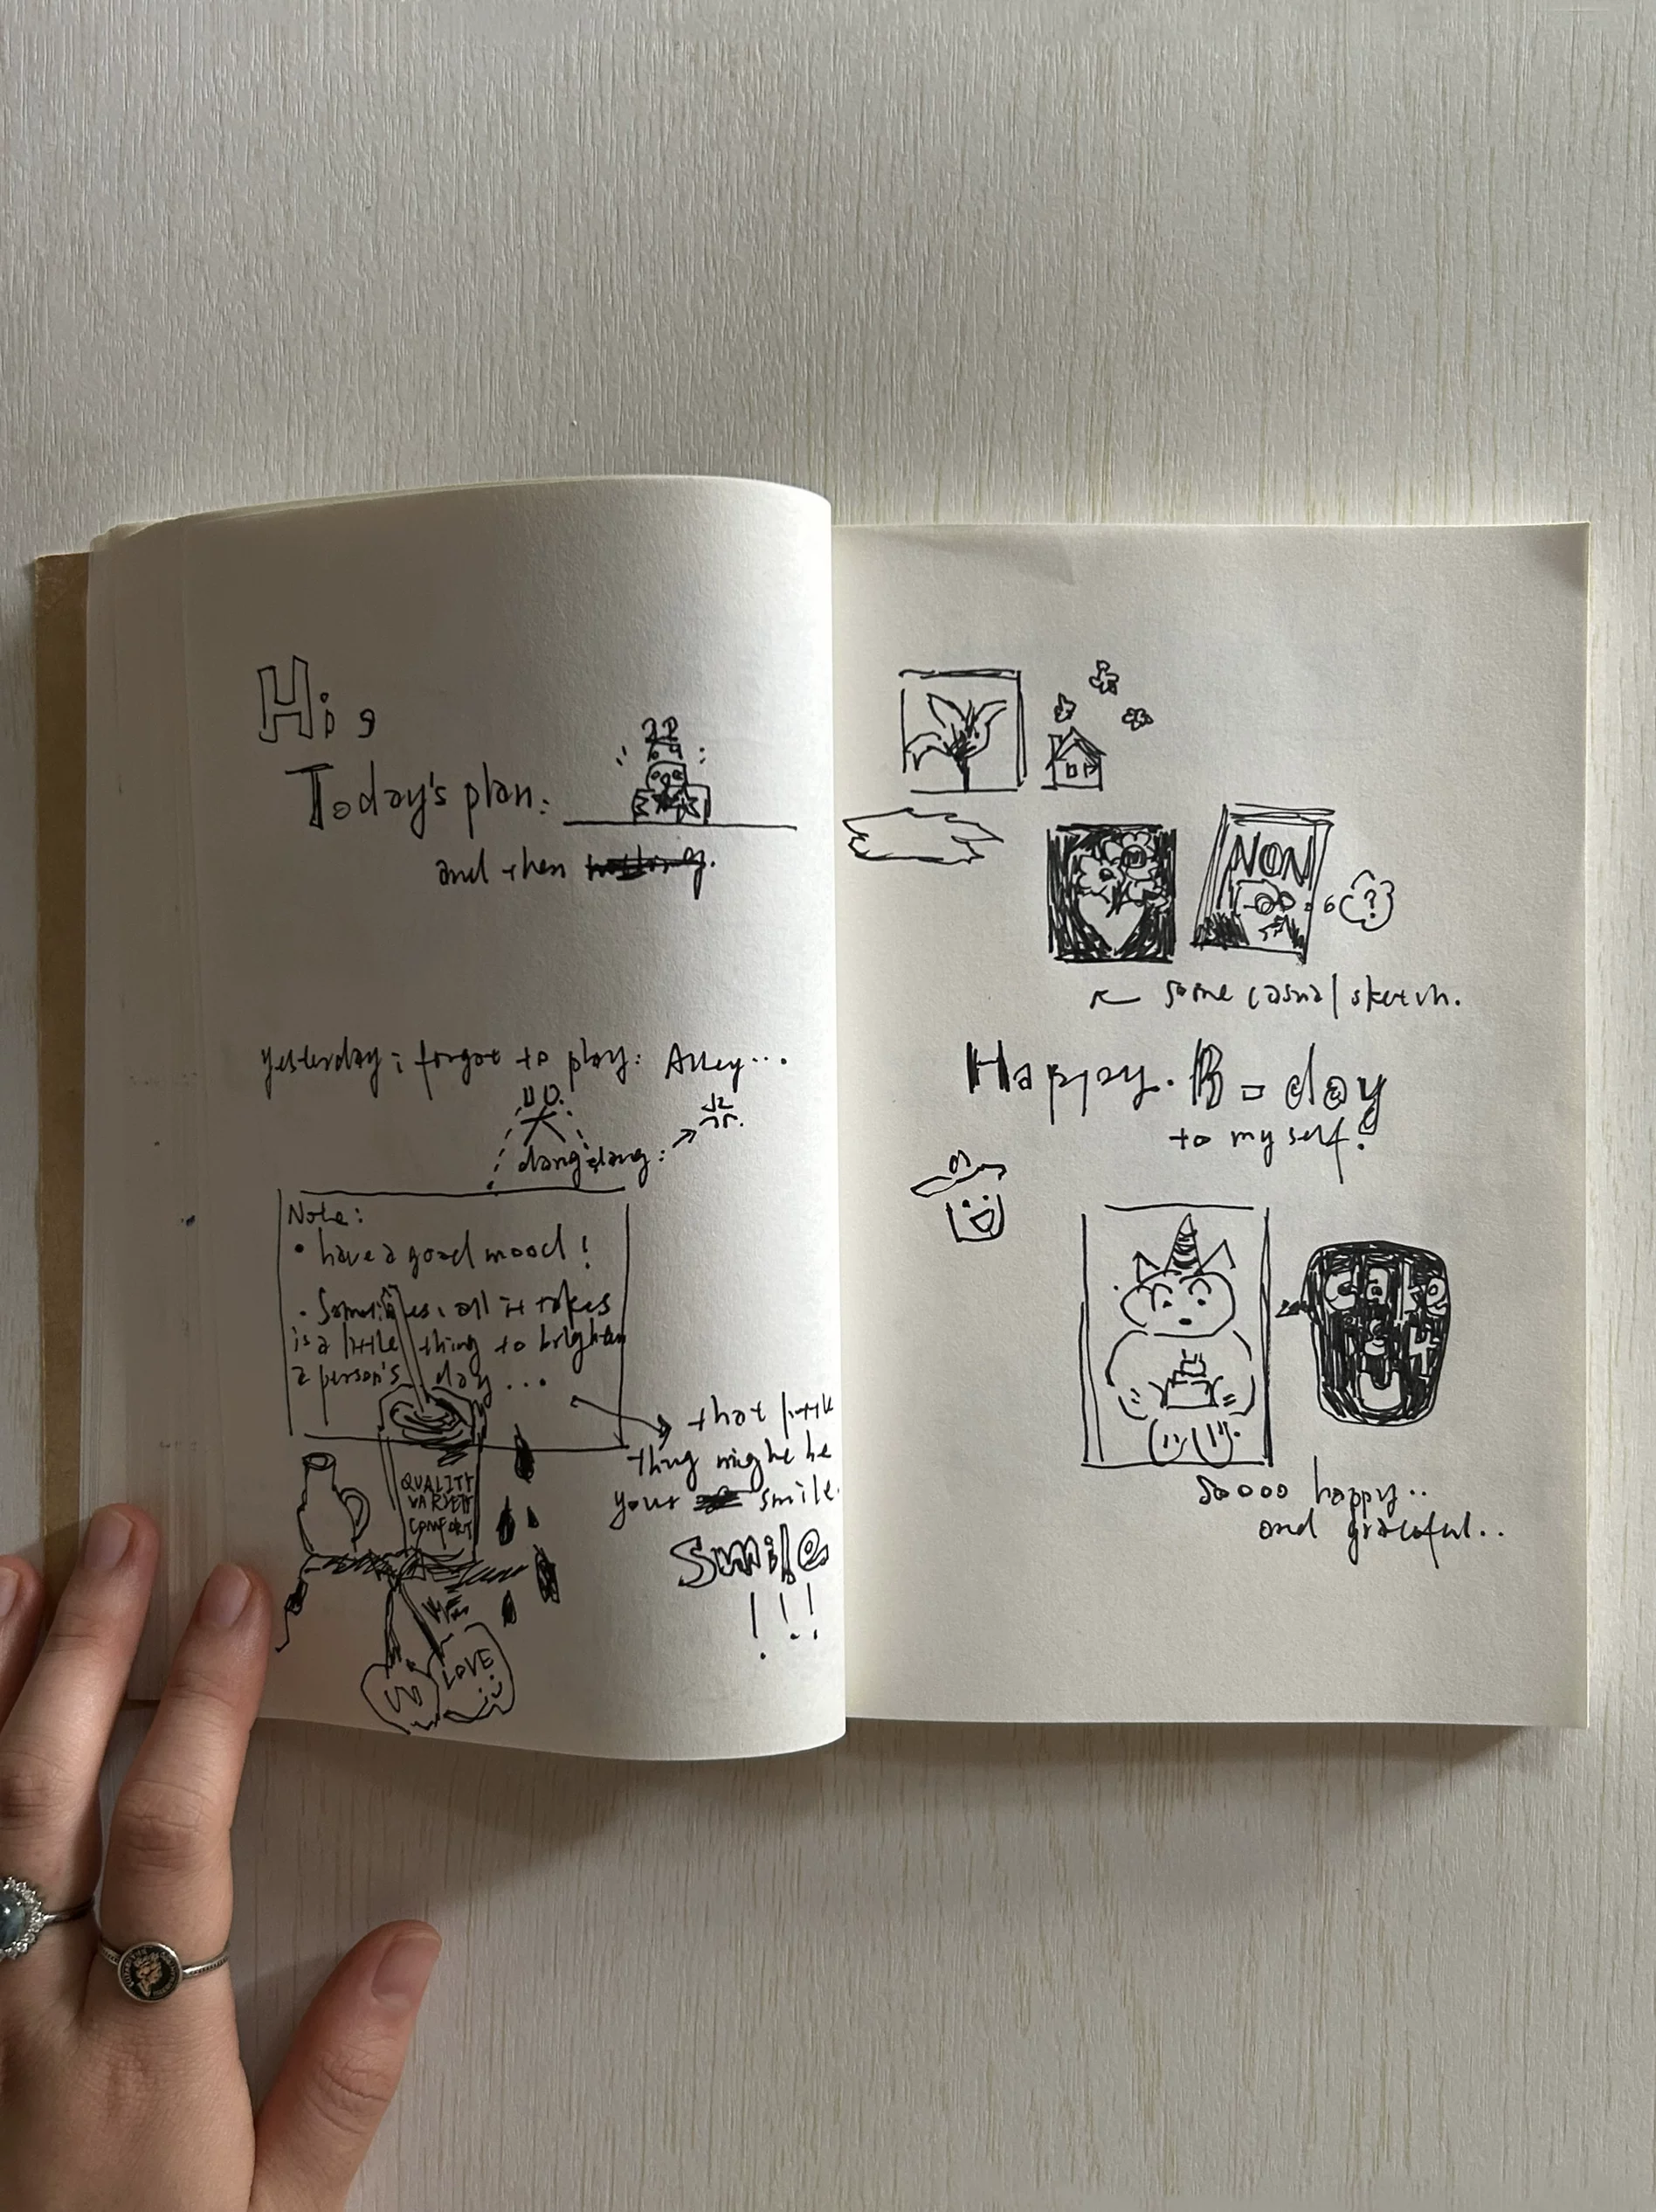 Hi,
Today's plan:
and then nothing.
yesterday: forgot to play:
dang dang:
Note:
• have a good mood!
• Sometimes, all it takes
is a little thing to brighten
a person's day...
that little
thing might be
your smile.
Smile
!!!
QUALITY
VARIETY
COMFORT
LOVE
NON
?
← some casual sketch.
Happy. B-day
to myself!
Cake
4
sooooo happy..
and grateful..